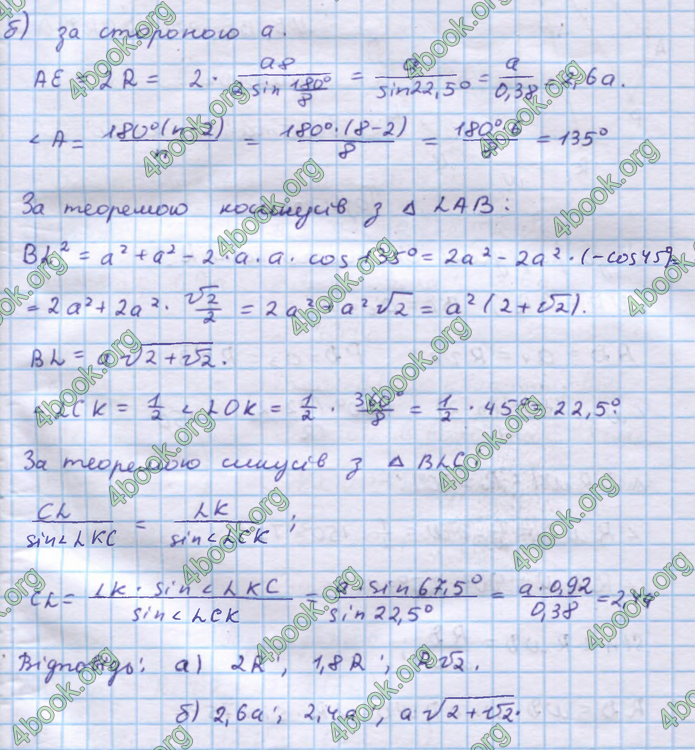 б) за стороною a.
AE = 2R = 2 · a8 / 2 sin 180°/8 = a / sin22,5° = a / 0,38 = 2,6a.
< A = 180°(n-2) / n = 180°·(8-2) / 8 = 180°·6 / 8 = 135°
За теоремою косинусів з △ LAB:
BL² = a² + a² - 2 · a · a · cos 135° = 2a² - 2a² · (-cos45°) =
= 2a² + 2a² · √2 / 2 = 2a² + a²√2 = a²(2+√2).
BL = a√(2+√2).
< LCK = 1/2 < LOK = 1/2 · 360°/8 = 1/2 · 45° = 22,5°.
За теоремою синусів з △ BLC
CL / sin< LKC = LK / sin< LCK ;
CL = LK · sin< LKC / sin< LCK = a · sin 67,5° / sin 22,5° = a · 0,92 / 0,38 =
Відповідь: а) 2R ; 1,8R ; R√2.
б) 2,6a ; 2,4a ; a√(2+√2).
4book.org